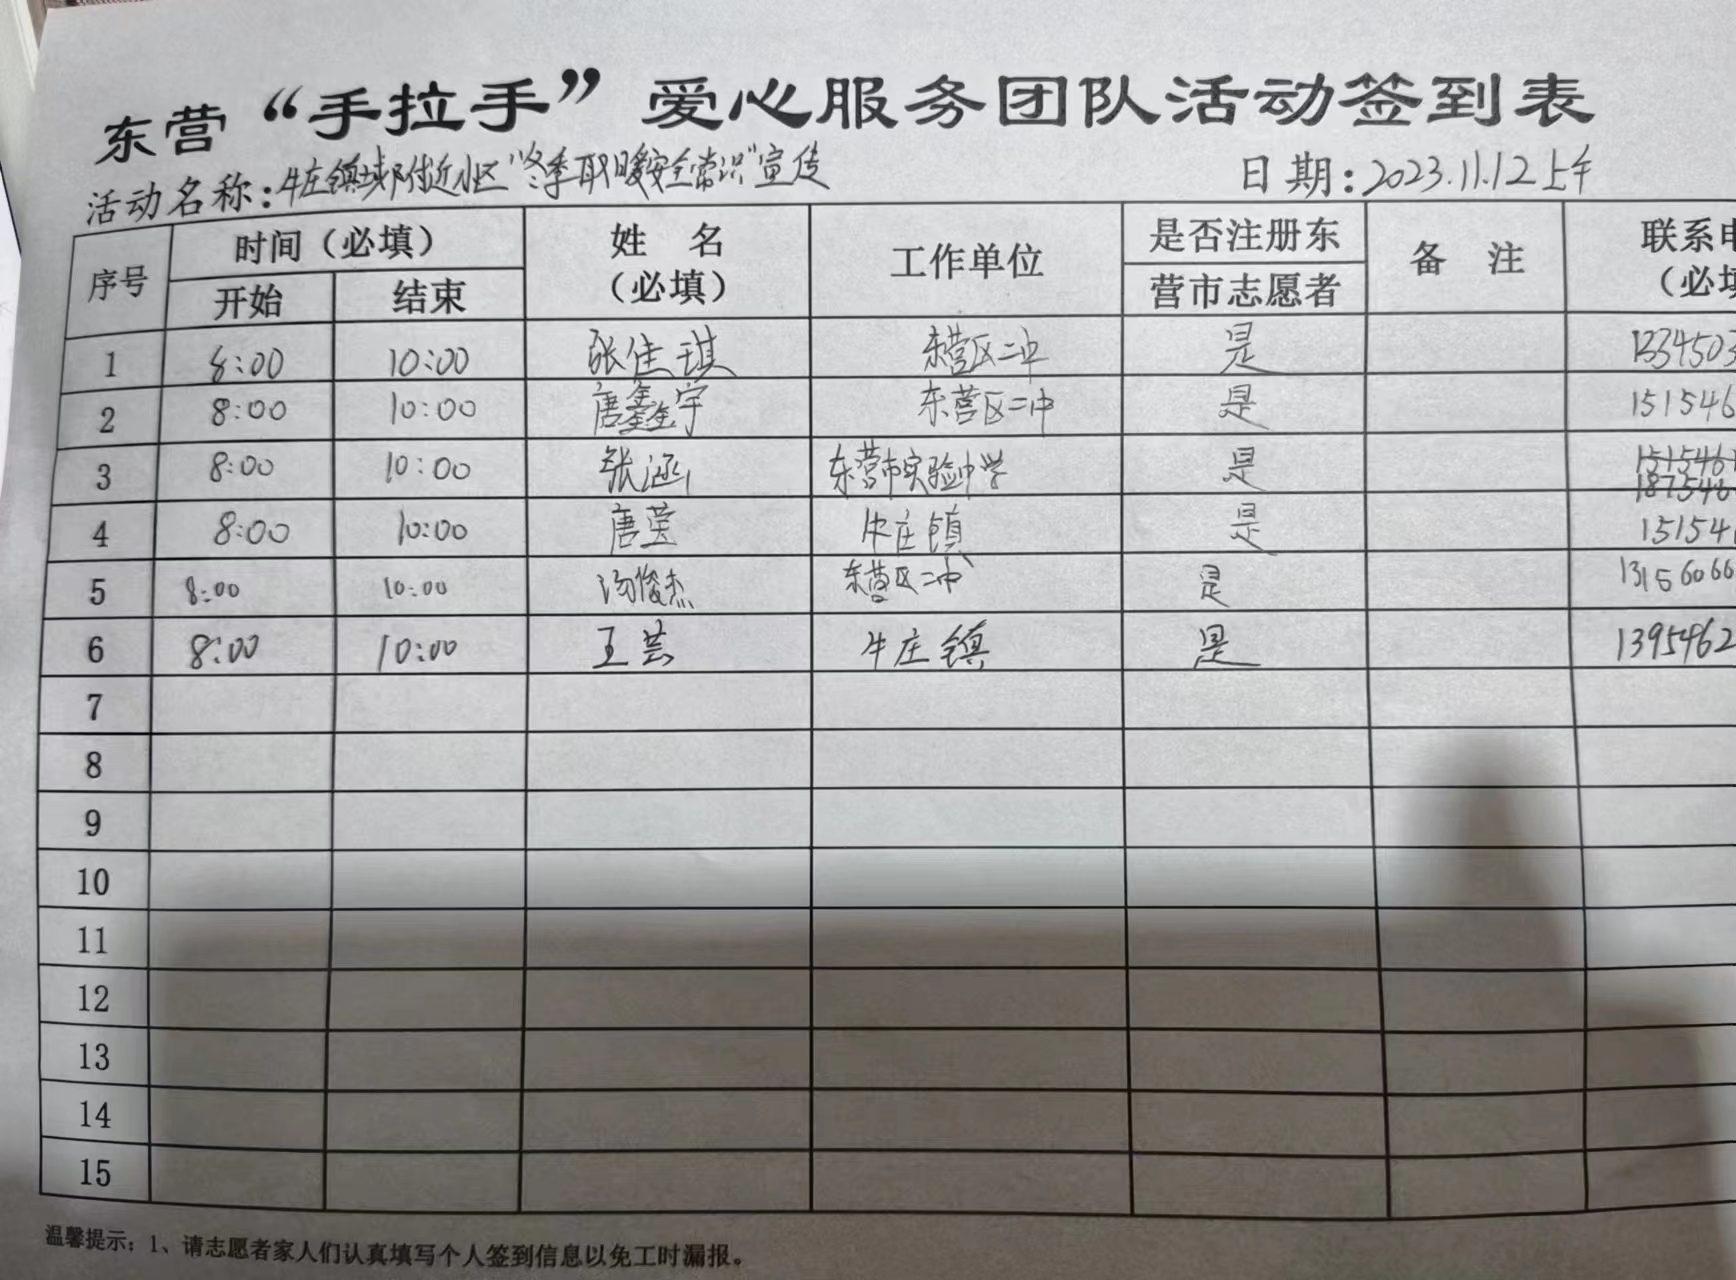 东营“手拉手”爱心服务团队活动签到表
活动名称:牛庄镇城郊附近小区“冬季取暖安全常识”宣传 日期:2023.11.12上午
序号 时间(必填) 姓名 工作单位 是否注册东 备注 联系电
开始 结束 (必填) 营市志愿者 (必填
1 8:00 10:00 张佳琪 东营区二中 是 1334503
2 8:00 10:00 唐鑫宇 东营区二中 是 151546
3 8:00 10:00 张涵 东营市实验中学 是 1515461
187546
4 8:00 10:00 唐莹 牛庄镇 是 15154
5 8:00 10:00 汤俊杰 东营区二中 是 13156066
6 8:00 10:00 王芸 牛庄镇 是 1395462
7
8
9
10
11
12
13
14
15
温馨提示:1、请志愿者家人们认真填写个人签到信息以免工时漏报。